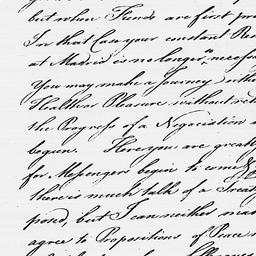 but when Funds are first pro
In that Case your constant Res
at Madrid is no longer necess
You may make a Journey
Health or Pleasure without ret
the Progress of a Negociation
begun. Here you are greatl
for Messengers begin to come &
there is much talk of a Treat
posed, but I can neither mak
agree to Propositions of Peace